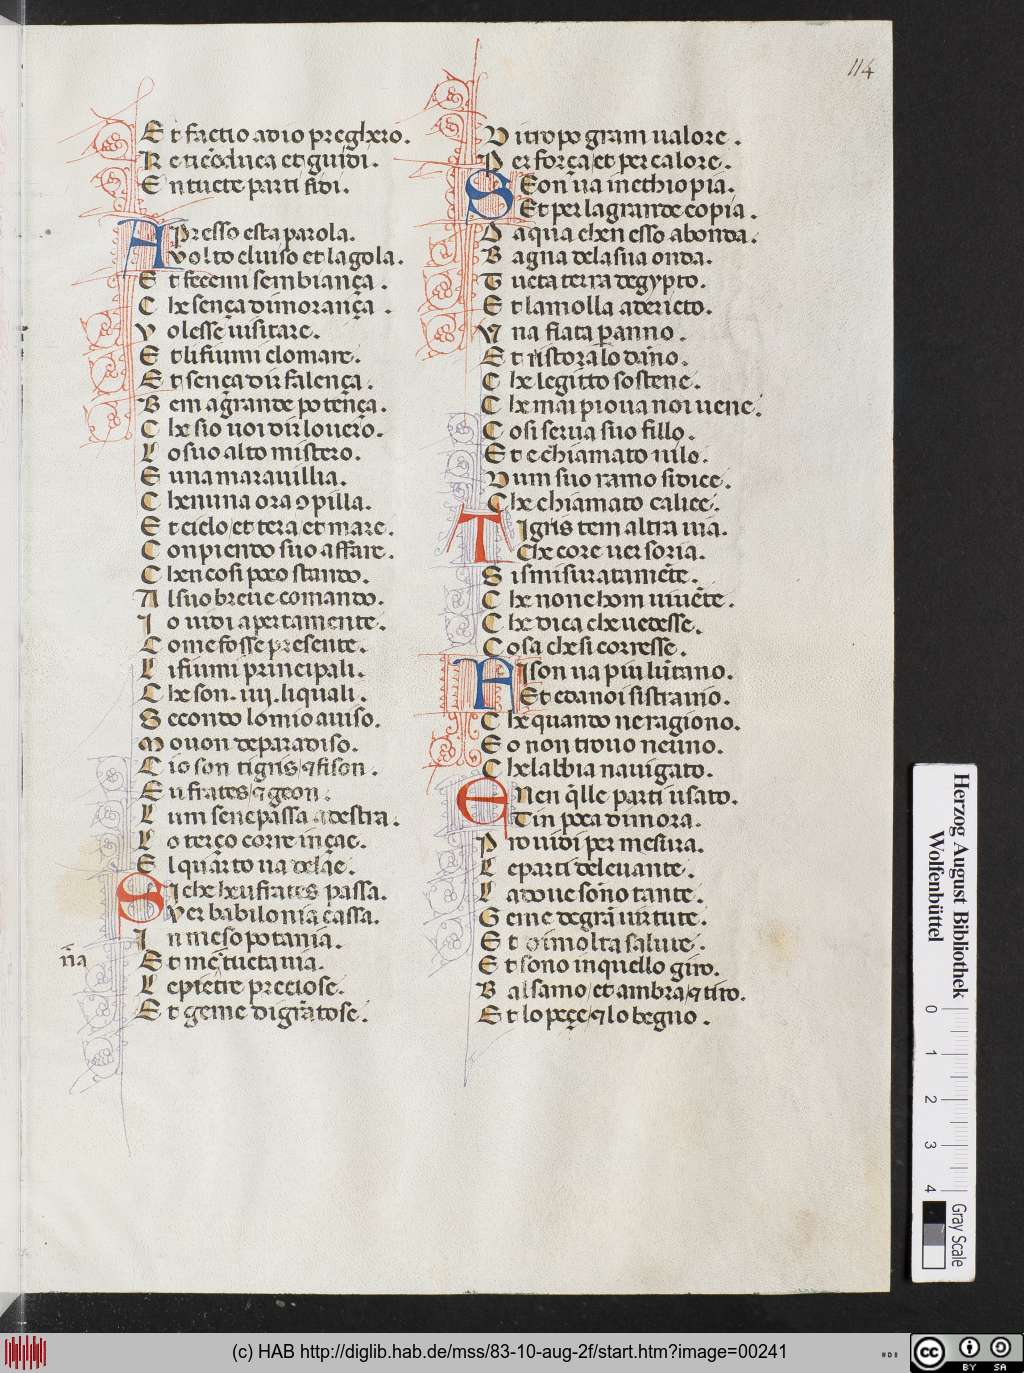 114
Et faccio a dio preghero.
Re ti cōduca et guidi.
En tucte parti fidi.
Apresso esta parola.
Volto el uiso et la gola.
Et fecemi sembiança.
Che sença dimorança.
Volesse uisitare.
Et li fiumi e lo mare.
Et sença dir falença.
Ben a grande potença.
Che sio uoi dir lo uero.
Lo suo alto mistero.
E una marauillia.
Che nuna ora ↄpilla.
Et cielo et tera et mare.
Conpiendo suo affare.
Che n cosi poco stando.
Al suo breue comando.
Io uidi apertamente.
Come fosse presente.
Li fiumi principali.
Che son .iiij. li quali.
Secondo lo mio auiso.
Mouon de paradiso.
Cio son tigris ⁊ fison.
Eufrates ⁊ geon.
Lun sene passa a destra.
Lo terço corre in çae.
El quarto ua de lae.
Si che heufrates passa.
Ver babilonia cassa.
In mesopotania.
na
Et me tucta uia.
Le pietre preciose.
Et geme digratose.
Di tropo gram ualore.
Per força et per calore.
Geon ua in ecthiopia.
Et per la grande copia.
D aqua che n esso abonda.
Bagna de la sua onda.
Tucta terra degypto.
Et la molla a dericto.
Una fiata per anno.
Et ristora lo danno.
Che legitto sostene.
Che mai pioua noi uene.
Cosi serua suo fillo.
Et e chiamato nilo.
Dum suo ramo si dice.
Che chiamato calice.
Tigris tem altra uia.
Che core uer soria.
Si smisuratamēte.
Che none hom uiuēte.
Che dica che uedesse.
Cosa che si corresse.
Fison ua piu lūtano.
Et eda noi sistranio.
Che quando ne ragiono.
Eo non trouo neuno.
Che labbia nauigato.
Ne n q̄lle parti usato.
Et in poca dimora.
Prouidi per mesura.
Le parti de leuante.
La doue sono tante.
Geme de grā uirtute.
Et di molta salute.
Et sono in quello giro.
Balsamo et ambra ⁊ tiro.
Et lo peçe ⁊ lo begno.
Herzog August Bibliothek
Wolfenbüttel
0 1 2 3 4
Gray Scale
(c) HAB http://diglib.hab.de/mss/83-10-aug-2f/start.htm?image=00241
cc BY SA